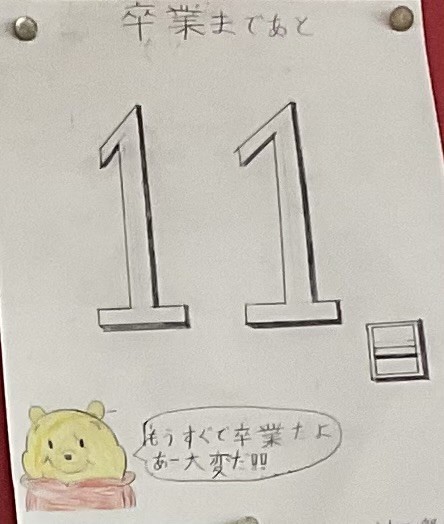 卒業まであと
11日
もうすぐで卒業だよ
あー大変だ!!